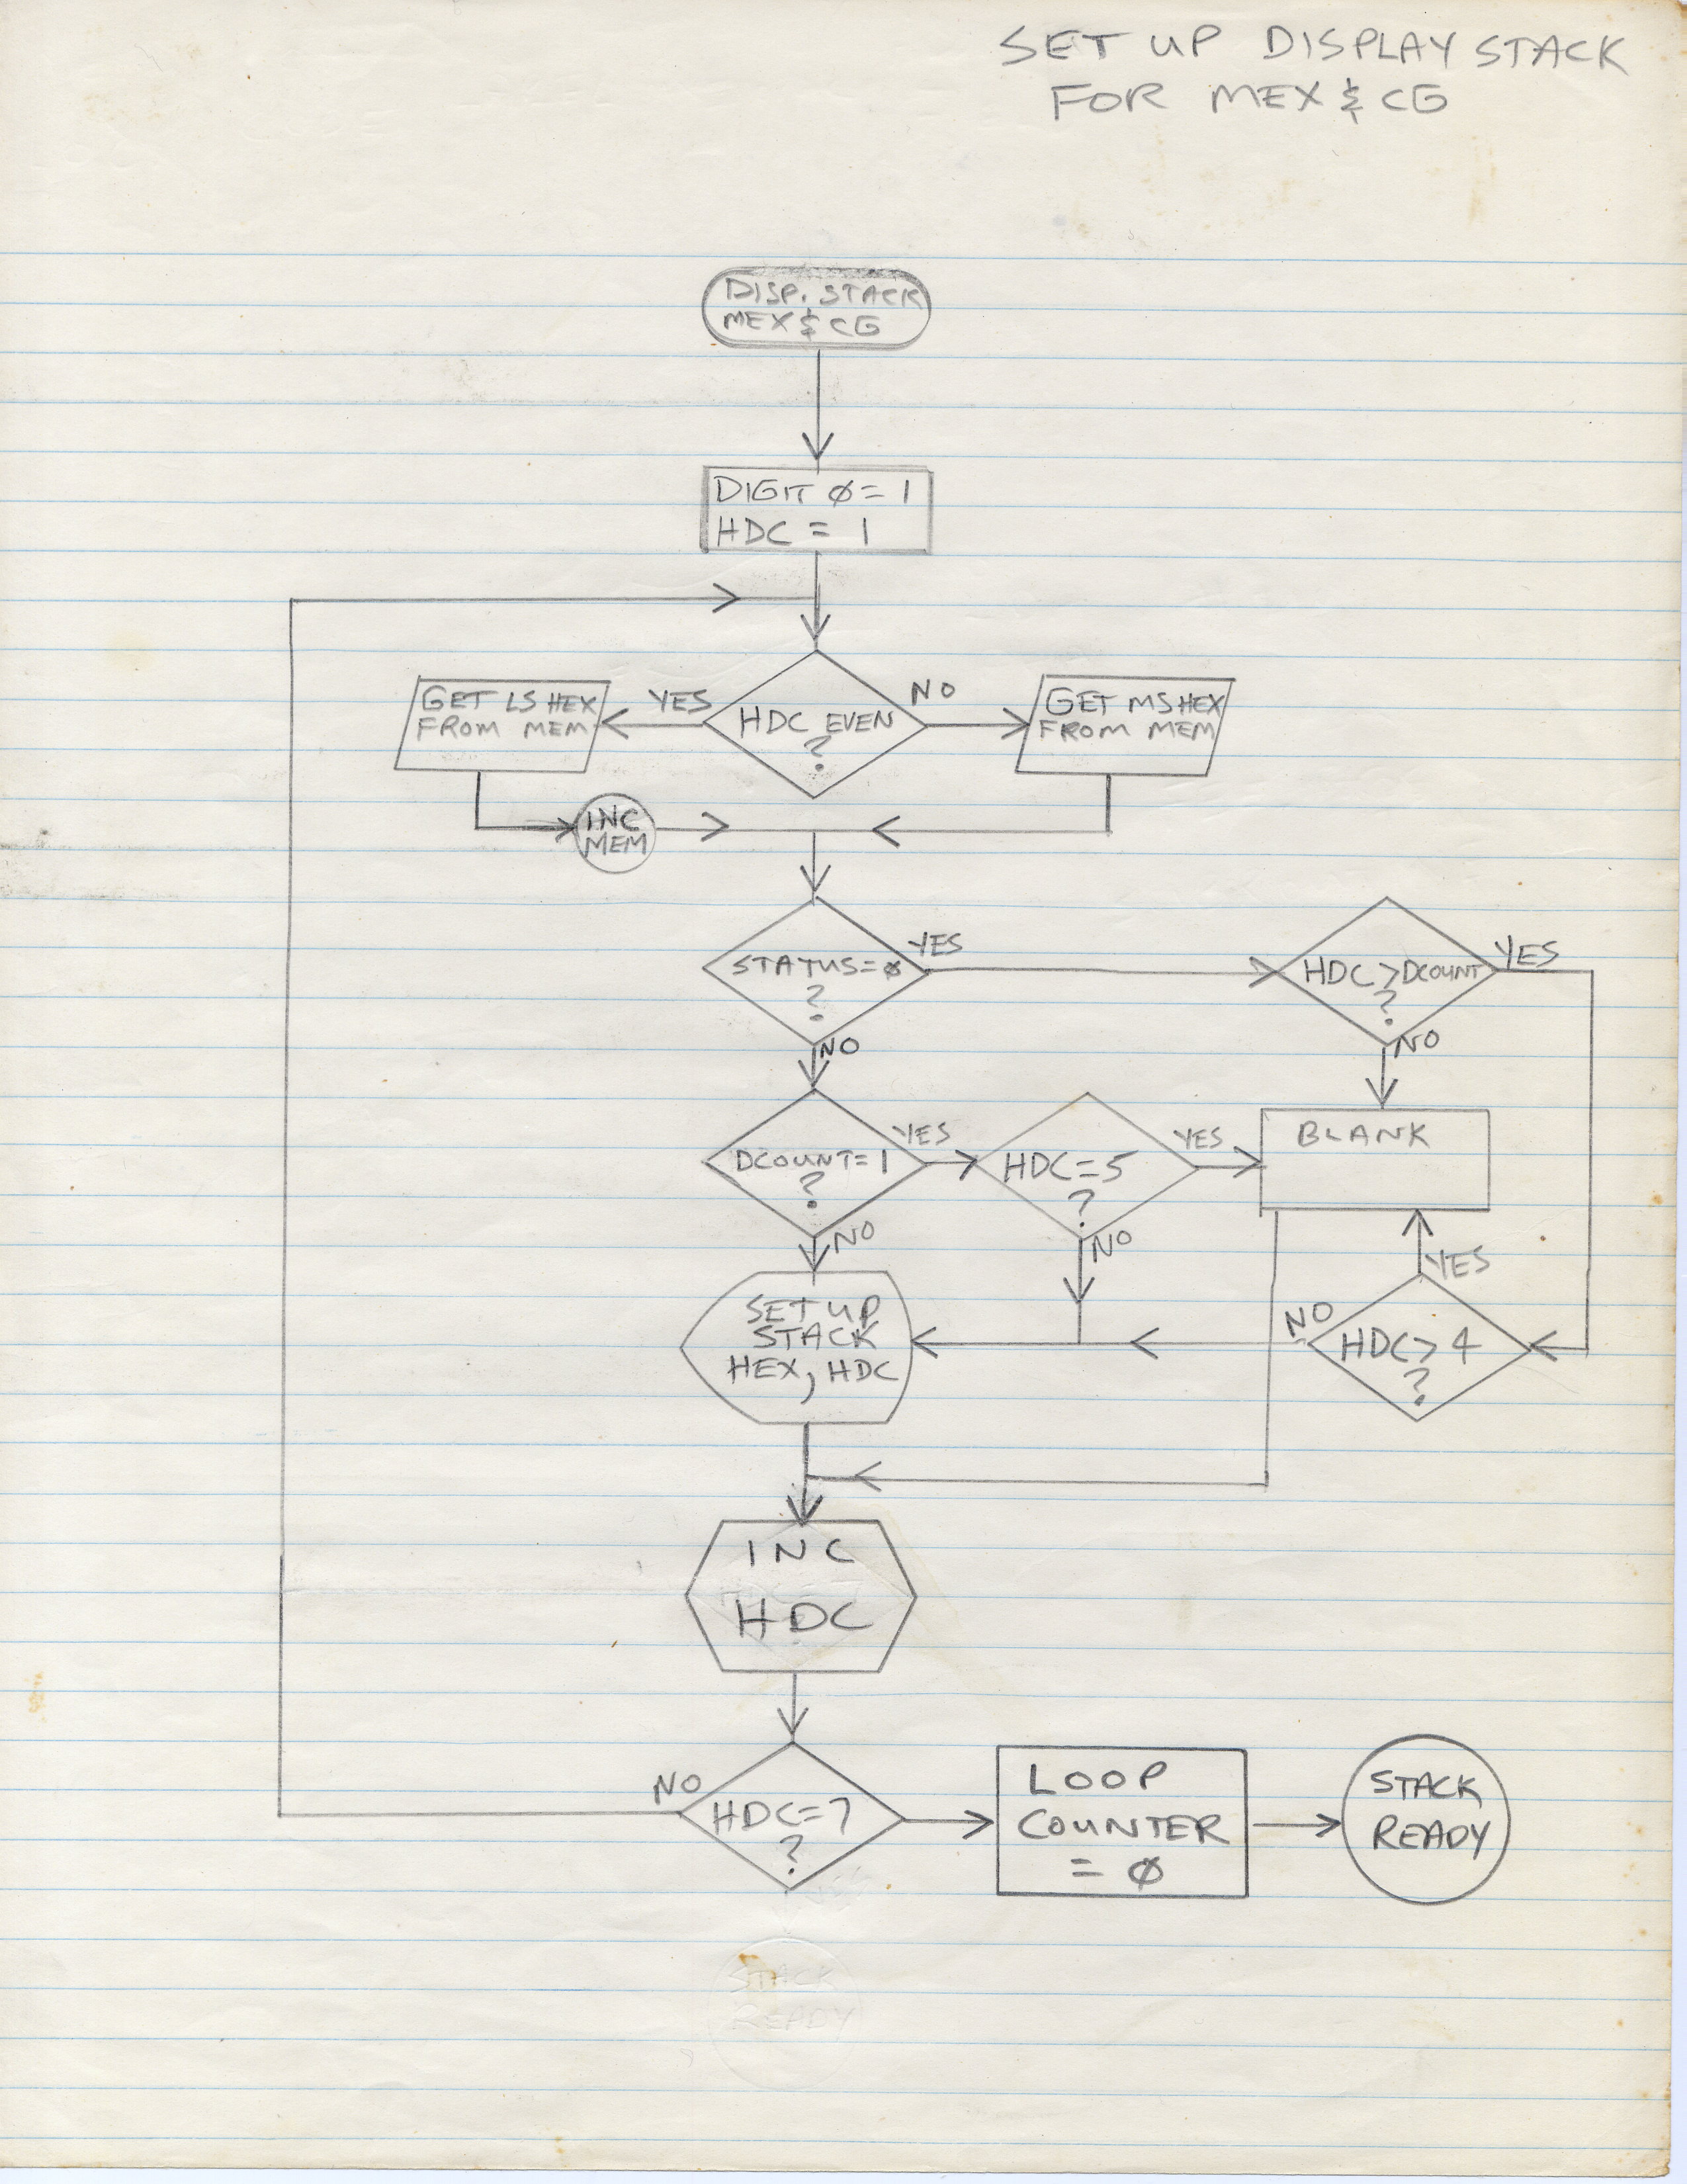 SET UP DISPLAY STACK
FOR MEX & CG
DISP. STACK
MEX & CG
DIGIT Ø = 1
HDC = 1
GET LS HEX
FROM MEM
YES
HDC EVEN
?
NO
GET MS HEX
FROM MEM
INC
MEM
STATUS=Ø
?
YES
HDC>DCOUNT
?
YES
NO
NO
DCOUNT=1
?
YES
HDC=5
?
YES
BLANK
NO
NO
YES
SET UP
STACK
HEX, HDC
NO
HDC>4
?
INC
HDC
NO
HDC=7
?
LOOP
COUNTER
= Ø
STACK
READY
STACK
READY